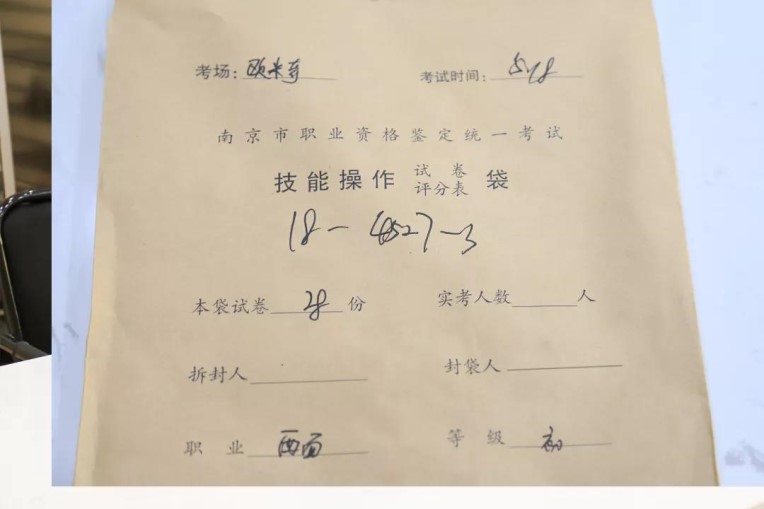 考场：欧米奇 考试时间：5.18
南京市职业资格鉴定统一考试
技能操作 试卷 评分表 袋
18-4527-3
本袋试卷 28 份 实考人数 人
拆封人 封袋人
职业 西面 等级 初